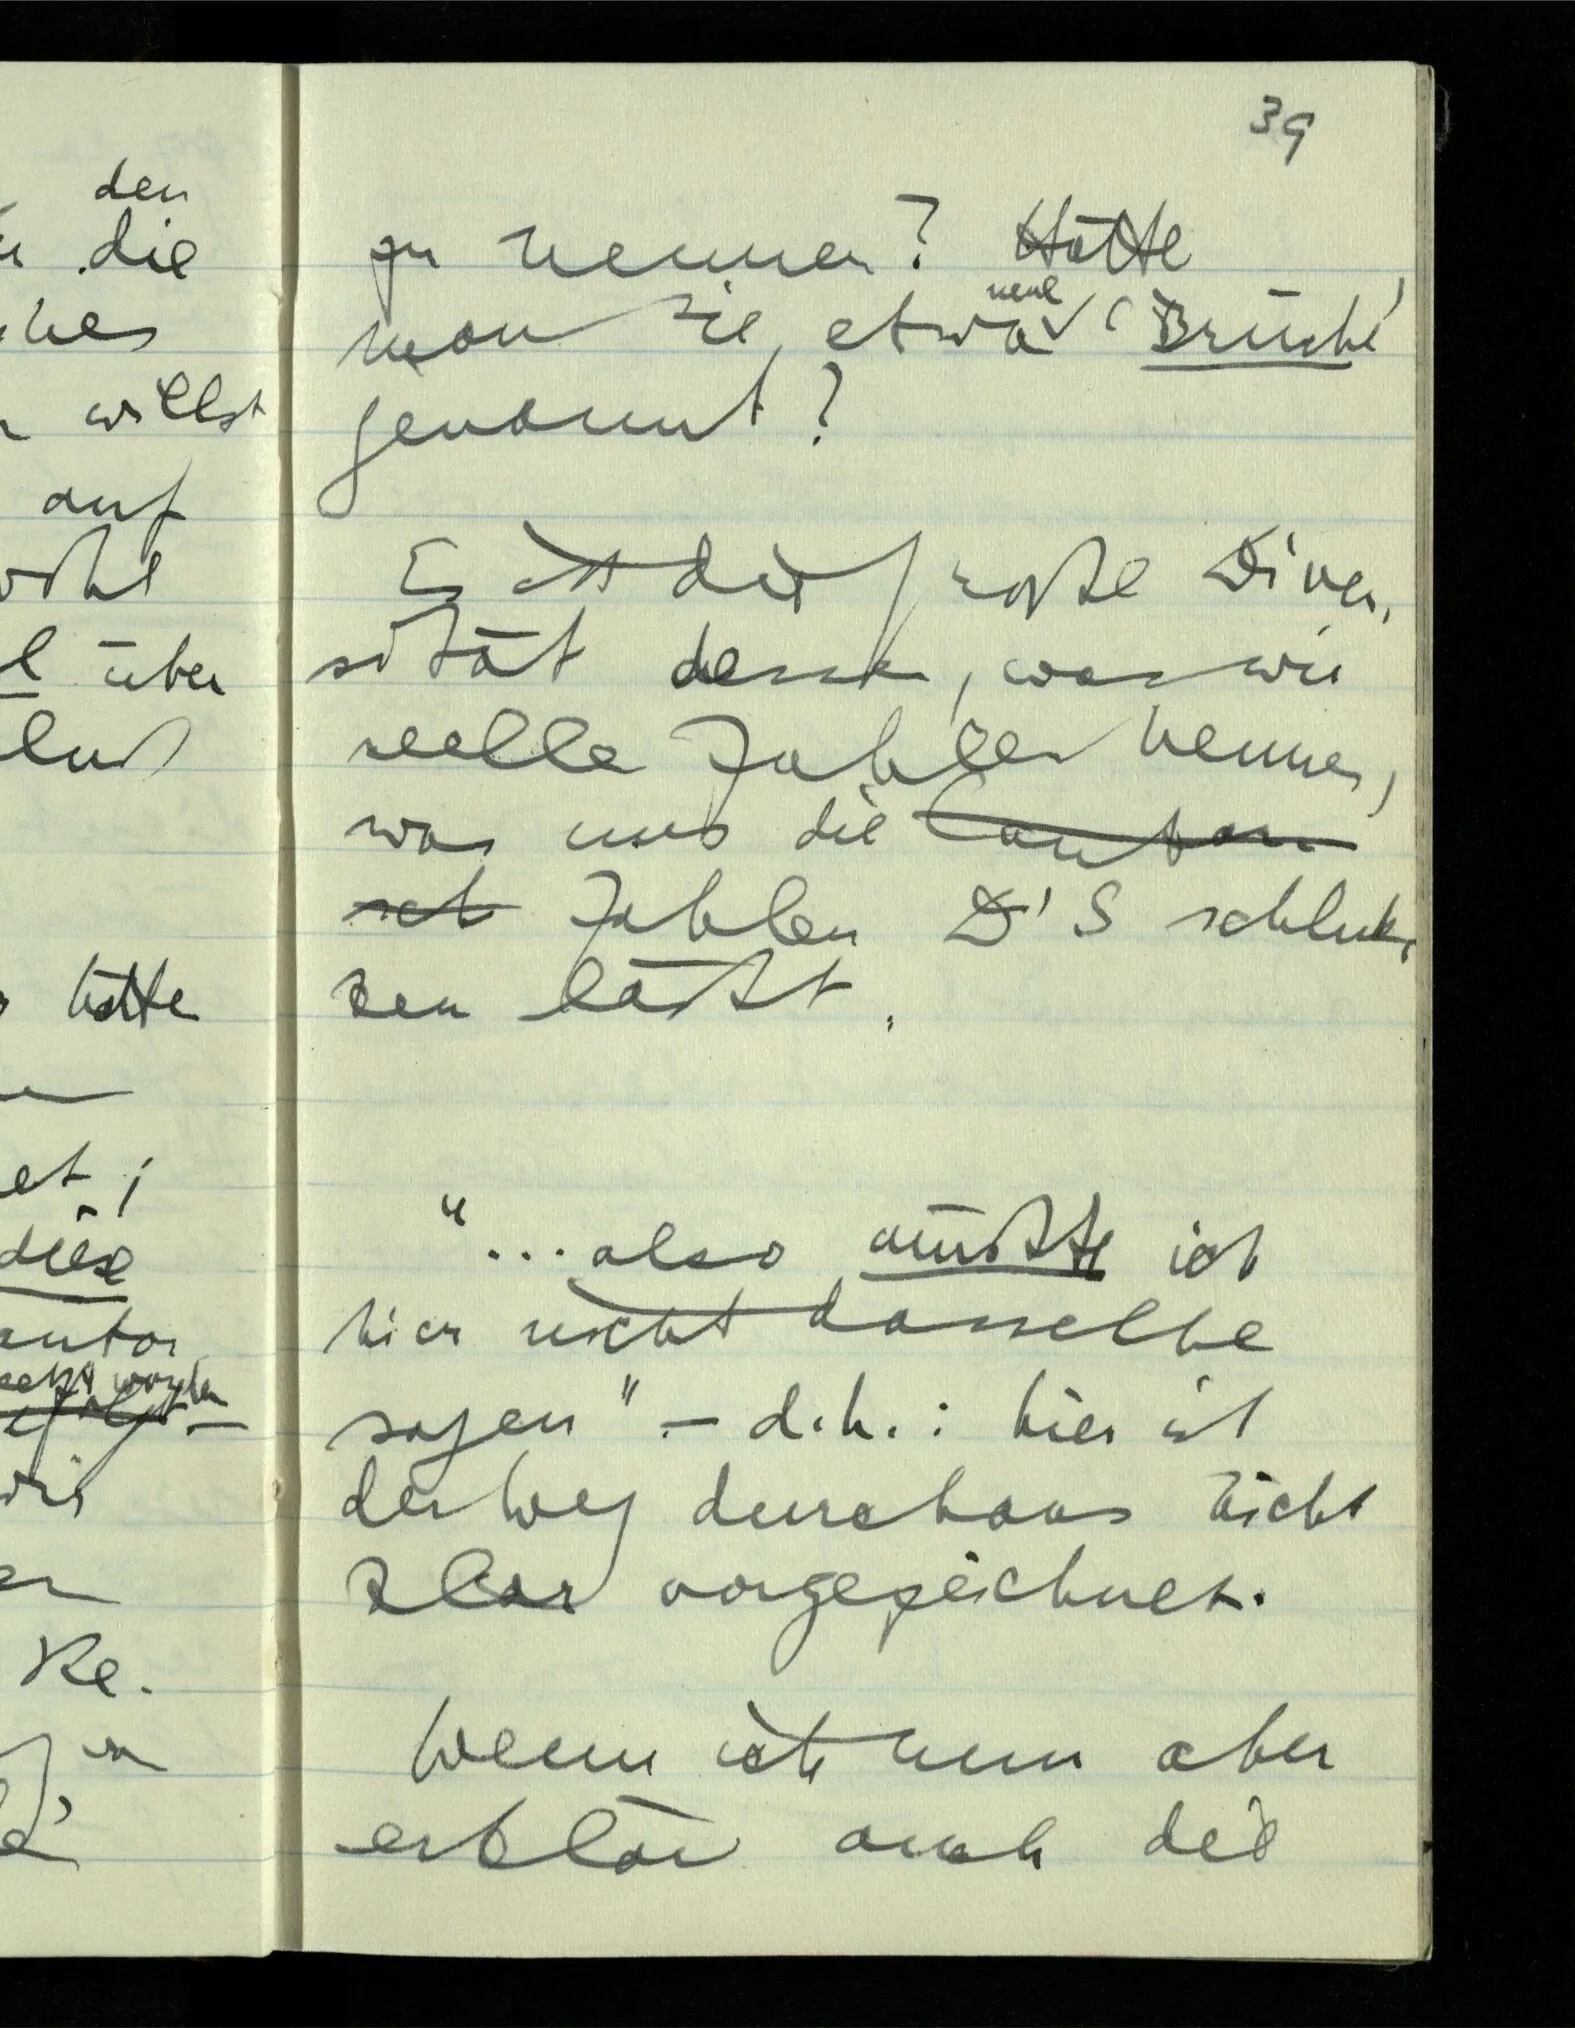 den
die
hes
willst
auf
wohl
über
hätte
et ;
diese
Cantor
wir
Re.
39
zu nennen? Hätte
man sie etwa neue ‘Brüche’
genannt?
Es ist die große Diver-
sität dessen, was wir
reelle Zahlen nennen,
was uns die Cantor
sch Zahlen D'S schluk-
ken läßt.
“...also müßte ich
hier nicht dasselbe
sagen” – d.h.: hier ist
der Weg durchaus nicht
klar vorgezeichnet.
Wenn ich nun aber
erklär auch die